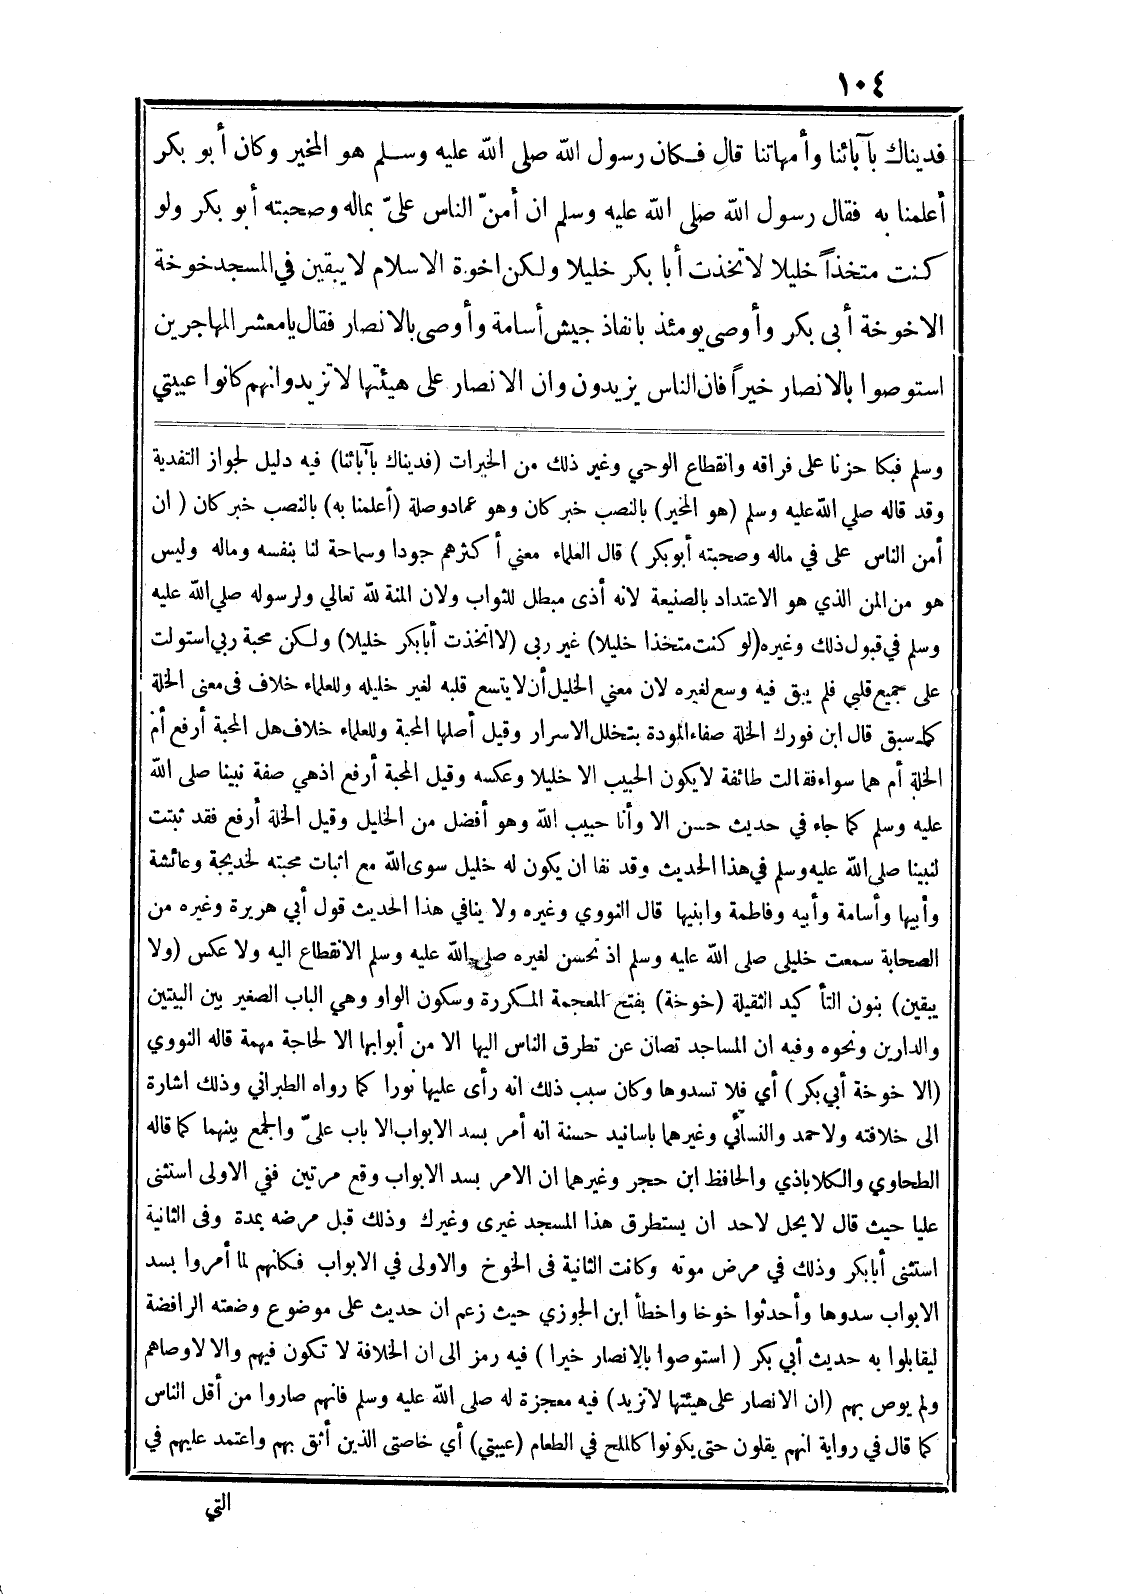 ١٠٤
فديناك بآبائنا وأمهاتنا قال فكان رسول الله صلى الله عليه وسلم هو المخير وكان أبو بكر
أعلمنا به فقال رسول الله صلى الله عليه وسلم ان أمنّ الناس علىّ بماله وصحبته أبو بكر ولو
كنت متخذاً خليلا لاتخذت أبا بكر خليلا ولكن اخوة الاسلام لا يبقين في المسجد خوخة
الا خوخة أبى بكر وأوصى يومئذ بانفاذ جيش أسامة وأوصى بالانصار فقال يا معشر المهاجرين
استوصوا بالانصار خيراً فان الناس يزيدون وان الانصار على هيئتها لا تزيد وانهم كانوا عيبتي
وسلم فبكا حزنا على فراقه وانقطاع الوحي وغير ذلك من الخيرات (فديناك بآبائنا) فيه دليل لجواز التفدية
وقد قاله صلي الله عليه وسلم (هو المخير) بالنصب خبر كان وهو عماد وصلة (أعلمنا به) بالنصب خبر كان ( ان
أمن الناس على في ماله وصحبته أبو بكر ) قال العلماء معني أكثرهم جودا وسماحة لنا بنفسه وماله وليس
هو من المن الذي هو الاعتداد بالصنيعة لانه أذى مبطل للثواب ولان المنة لله تعالي ولرسوله صلى الله عليه
وسلم في قبول ذلك وغيره (لو كنت متخذا خليلا) غير ربى (لا اتخذت أبا بكر خليلا) ولكن محبة ربي استولت
على جميع قلبي فلم يبق فيه وسع لغيره لان معني الخليل أن لا يتسع قلبه لغير خليله وللعلماء خلاف فى معنى الخلة
كما سبق قال ابن فورك الخلة صفاء المودة بتخلل الاسرار وقيل أصلها المحبة وللعلماء خلاف هل المحبة أرفع أم
الخلة أم هما سواء فقالت طائفة لا يكون الحبيب الا خليلا وعكسه وقيل المحبة أرفع اذ هي صفة نبينا صلى الله
عليه وسلم كما جاء في حديث حسن الا وأنا حبيب الله وهو أفضل من الخليل وقيل الخلة أرفع فقد ثبتت
لنبينا صلى الله عليه وسلم في هذا الحديث وقد نفا ان يكون له خليل سوى الله مع اثبات محبته لخديجة وعائشة
وأبيها وأسامة وأبيه وفاطمة وابنيها قال النووي وغيره ولا ينافي هذا الحديث قول أبي هريرة وغيره من
الصحابة سمعت خليلى صلى الله عليه وسلم اذ تحسن لغيره صلى الله عليه وسلم الانقطاع اليه ولا عكس (ولا
يبقين) بنون التأكيد الثقيلة (خوخة) بفتح المعجمة المكررة وسكون الواو وهي الباب الصغير بين البيتين
والدارين ونحوه وفيه ان المساجد تصان عن تطرق الناس اليها الا من أبوابها الا لحاجة مهمة قاله النووي
(الا خوخة أبي بكر ) أي فلا تسدوها وكان سبب ذلك انه رأى عليها نورا كما رواه الطبراني وذلك اشارة
الى خلافته ولاحمد والنسائي وغيرهما باسانيد حسنة انه أمر بسد الابواب الا باب علىّ والجمع بينهما كما قاله
الطحاوي والكلاباذي والحافظ ابن حجر وغيرهما ان الامر بسد الابواب وقع مرتين ففي الاولى استثنى
عليا حيث قال لا يحل لاحد ان يستطرق هذا المسجد غيرى وغيرك وذلك قبل مرضه بمدة وفى الثانية
استثنى أبا بكر وذلك في مرض موته وكانت الثانية فى الخوخ والاولى في الابواب فكانهم لما أمروا بسد
الابواب سدوها وأحدثوا خوخا واخطأ ابن الجوزي حيث زعم ان حديث على موضوع وضعته الرافضة
ليقابلوا به حديث أبي بكر ( استوصوا بالانصار خيرا ) فيه رمز الى ان الخلافة لا تكون فيهم والا لاوصاهم
ولم يوص بهم (ان الانصار على هيئتها لا تزيد) فيه معجزة له صلى الله عليه وسلم فانهم صاروا من أقل الناس
كما قال في رواية انهم يقلون حتى يكونوا كالملح في الطعام (عيبتي) أي خاصتى الذين أثق بهم واعتمد عليهم في
التي